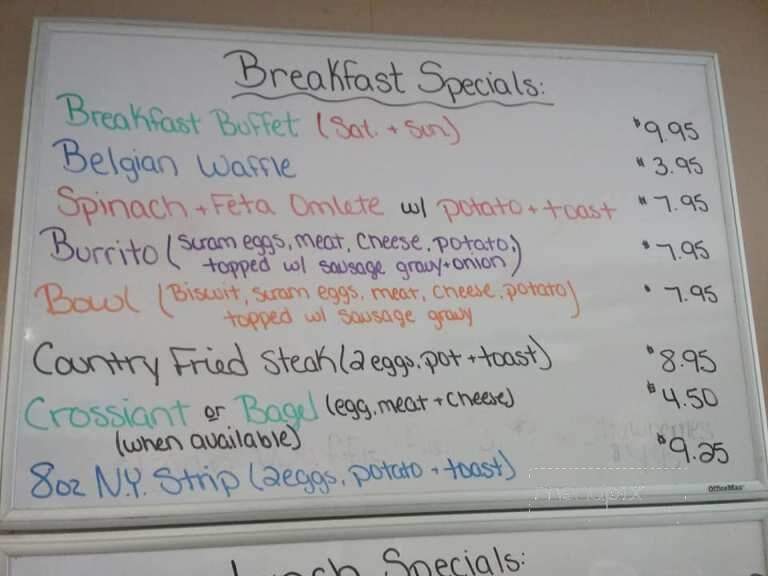 Breakfast Specials:
Breakfast Buffet (Sat. + Sun) $9.95
Belgian Waffle $3.95
Spinach + Feta Omlete w/ potato + toast $7.95
Burrito (scram eggs, meat, cheese, potato, $7.95
topped w/ sausage gravy + onion)
Bowl (Biscuit, scram eggs, meat, cheese, potato) $7.95
topped w/ sausage gravy
Country Fried Steak (2 eggs, pot + toast) $8.95
Crossiant or Bagel (egg, meat + cheese) $4.50
(when available)
8oz N.Y. Strip (2 eggs, potato + toast) $9.25
menupix
OfficeMax
Lunch Specials: